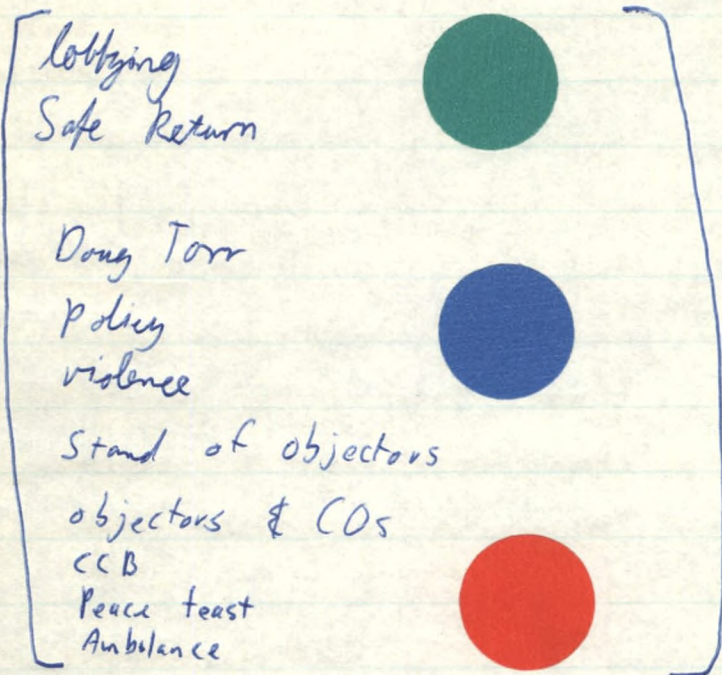 lobbying
Safe Return
Doug Torr
Policy
violence
Stand of objectors
objectors & COs
CCB
Peace feast
Ambulance